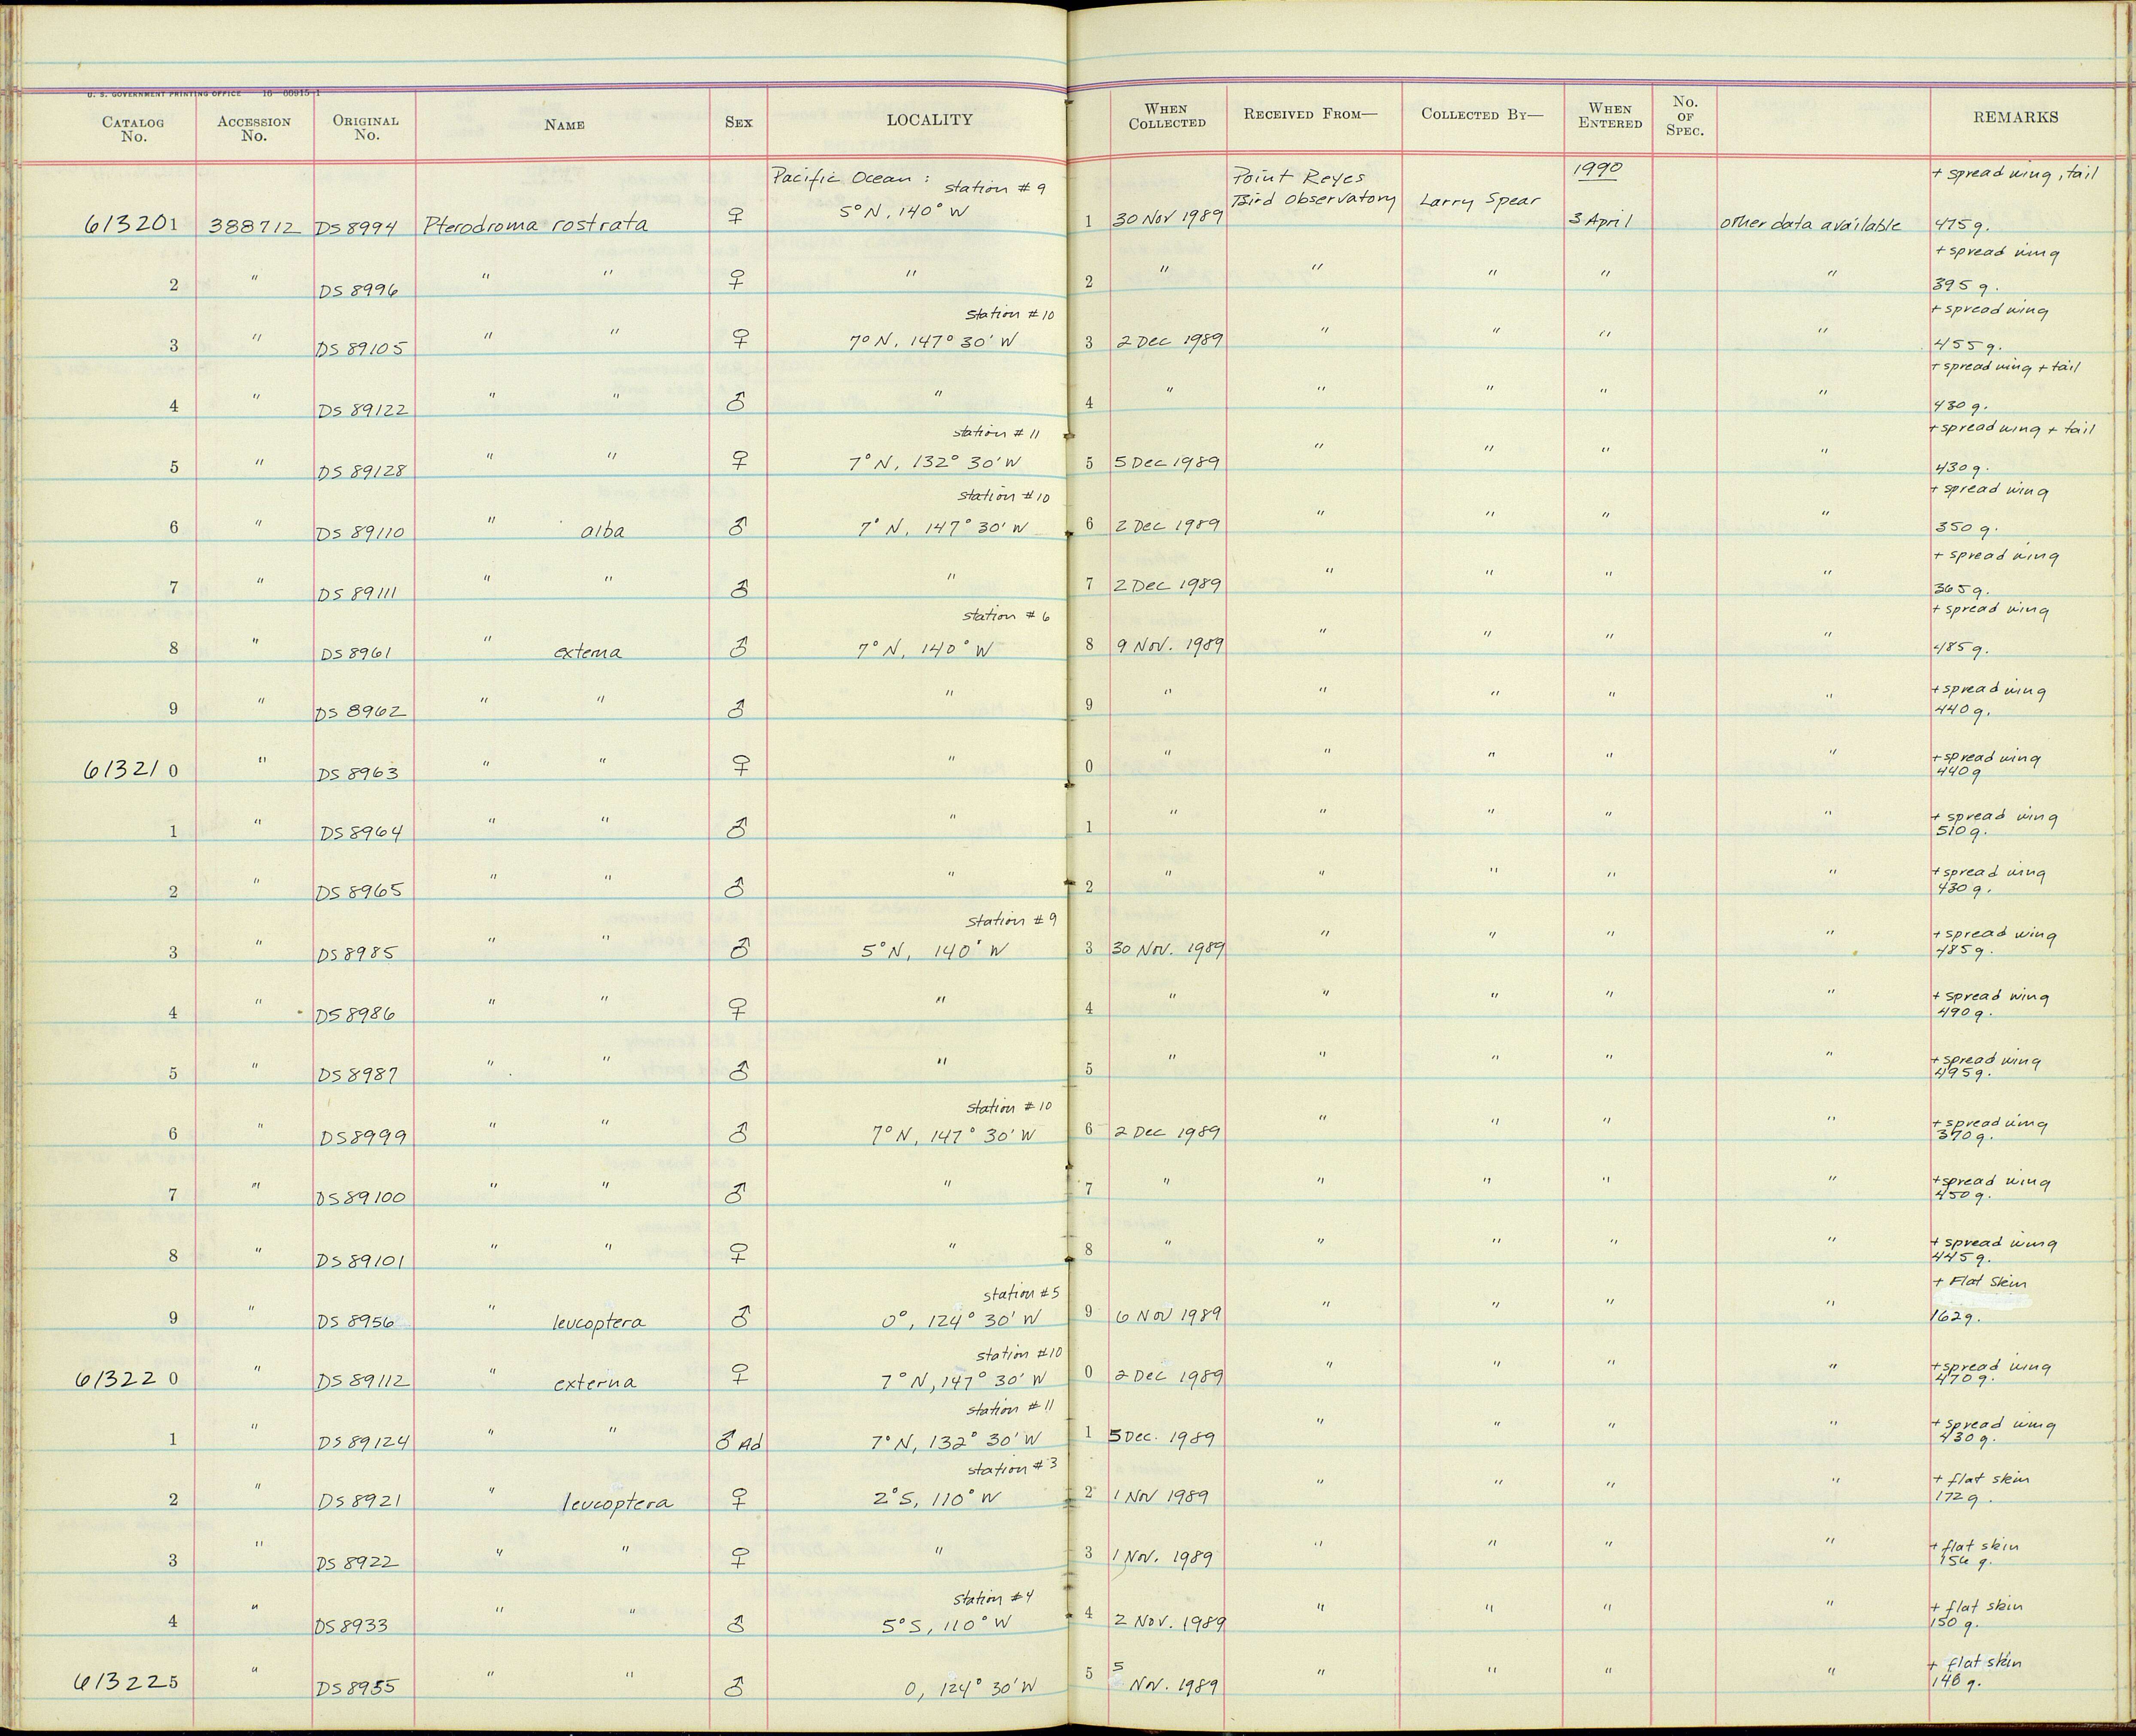 U. S. GOVERNMENT PRINTING OFFICE 16—60915-1
CATALOG No. ACCESSION No. ORIGINAL No. NAME SEX LOCALITY WHEN COLLECTED RECEIVED FROM— COLLECTED BY— WHEN ENTERED No. OF SPEC. REMARKS
Pacific Ocean : station # 9 Point Reyes 1990 + spread wing, tail
613201 388712 DS 8994 Pterodroma rostrata ♀ 5° N, 140° W 1 30 Nov 1989 Bird Observatory Larry Spear 3 April other data available 475 g.
+ spread wing
2 " DS 8996 " " ♀ " 2 " " " " " 395 g.
station #10 + spread wing
3 " DS 89105 " " ♀ 7° N, 147° 30' W 3 2 Dec 1989 " " " " 455 g.
+ spread wing + tail
4 " DS 89122 " " ♂ " 4 " " " " " 430 g.
station # 11 + spread wing + tail
5 " DS 89128 " " ♀ 7° N, 132° 30' W 5 5 Dec 1989 " " " " 430 g.
station #10 + spread wing
6 " DS 89110 " alba ♂ 7° N, 147° 30' W 6 2 Dec 1989 " " " " 350 g.
+ spread wing
7 " DS 89111 " " ♂ " 7 2 Dec 1989 " " " " 365 g.
station # 6 + spread wing
8 " DS 8961 " externa ♂ 7° N, 140° W 8 9 Nov. 1989 " " " " 485 g.
+ spread wing
9 " DS 8962 " " ♂ " 9 " " " " " 440 g.
+ spread wing
613210 " DS 8963 " " ♀ " 0 " " " " " 440 g
+ spread wing
1 " DS 8964 " " ♂ " 1 " " " " " 510 g.
+ spread wing
2 " DS 8965 " " ♂ " 2 " " " " " 430 g.
station # 9 + spread wing
3 " DS 8985 " " ♂ 5° N, 140° W 3 30 Nov. 1989 " " " " 485 g.
+ spread wing
4 " DS 8986 " " ♀ " 4 " " " " " 490 g.
+ spread wing
5 " DS 8987 " " ♂ " 5 " " " " " 495 g.
station # 10 + spread wing
6 " DS 8999 " " ♂ 7° N, 147° 30' W 6 2 Dec 1989 " " " " 370 g.
+ spread wing
7 " DS 89100 " " ♂ " 7 " " " " " 450 g.
+ spread wing
8 " DS 89101 " " ♀ " 8 " " " " " 445 g.
station #5 + Flat Skin
9 " DS 8956 " leucoptera ♂ 0°, 124° 30' W 9 6 Nov 1989 " " " " 162 g.
station #10 + spread wing
613220 " DS 89112 " externa ♀ 7° N, 147° 30' W 0 2 Dec 1989 " " " " 470 g.
station # 11 + spread wing
1 " DS 89124 " " ♂ Ad 7° N, 132° 30' W 1 5 Dec. 1989 " " " " 430 g.
station # 3 + flat skin
2 " DS 8921 " leucoptera ♀ 2° S, 110° W 2 1 Nov 1989 " " " " 172 g.
+ flat skin
3 " DS 8922 " " ♀ " 3 1 Nov. 1989 " " " " g.
station #4 + flat skin
4 " DS 8933 " " ♂ 5° S, 110° W 4 2 Nov. 1989 " " " " 150 g.
5 + flat skin
613225 " DS 8955 " " ♂ 0, 124° 30' W 5 Nov. 1989 " " " " 146 g.